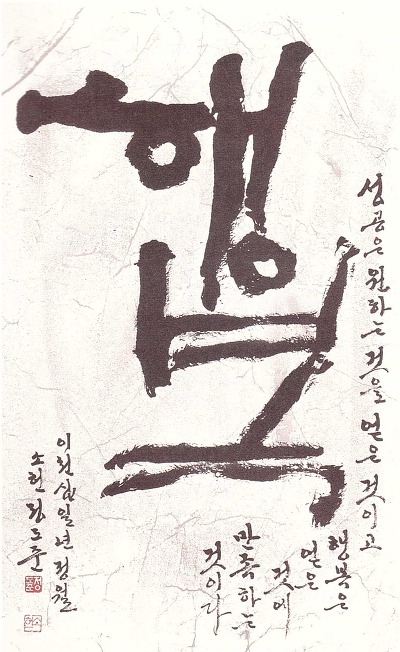 행복
성공은 원하는 것을 얻은 것이고
행복은
얻은
것에
만족하는
것이다
이천십일년 정월
소헌 정도준